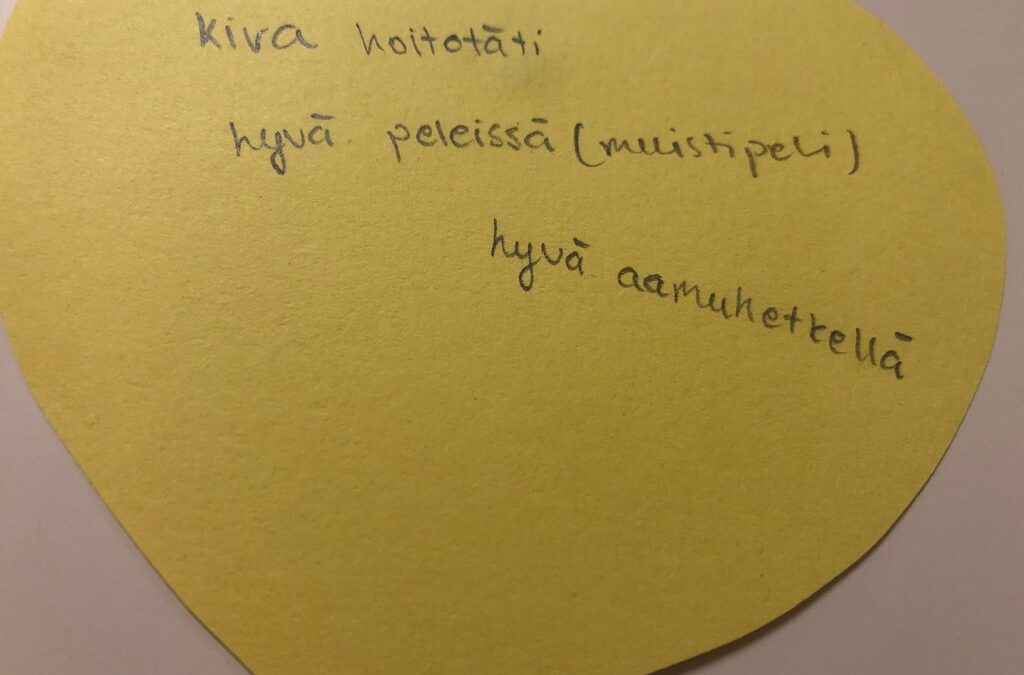 kiva hoitotäti
hyvä peleissä (muistipeli)
hyvä aamuhetkellä